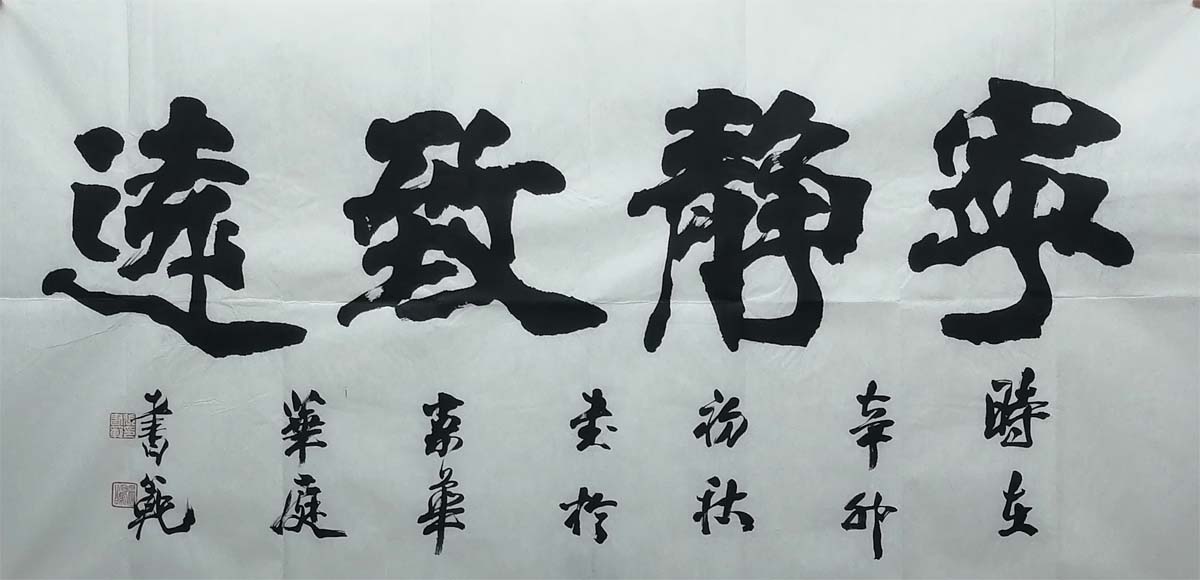 寧靜致遠
時在
辛卯
初秋
書於
京華
華庭
書範